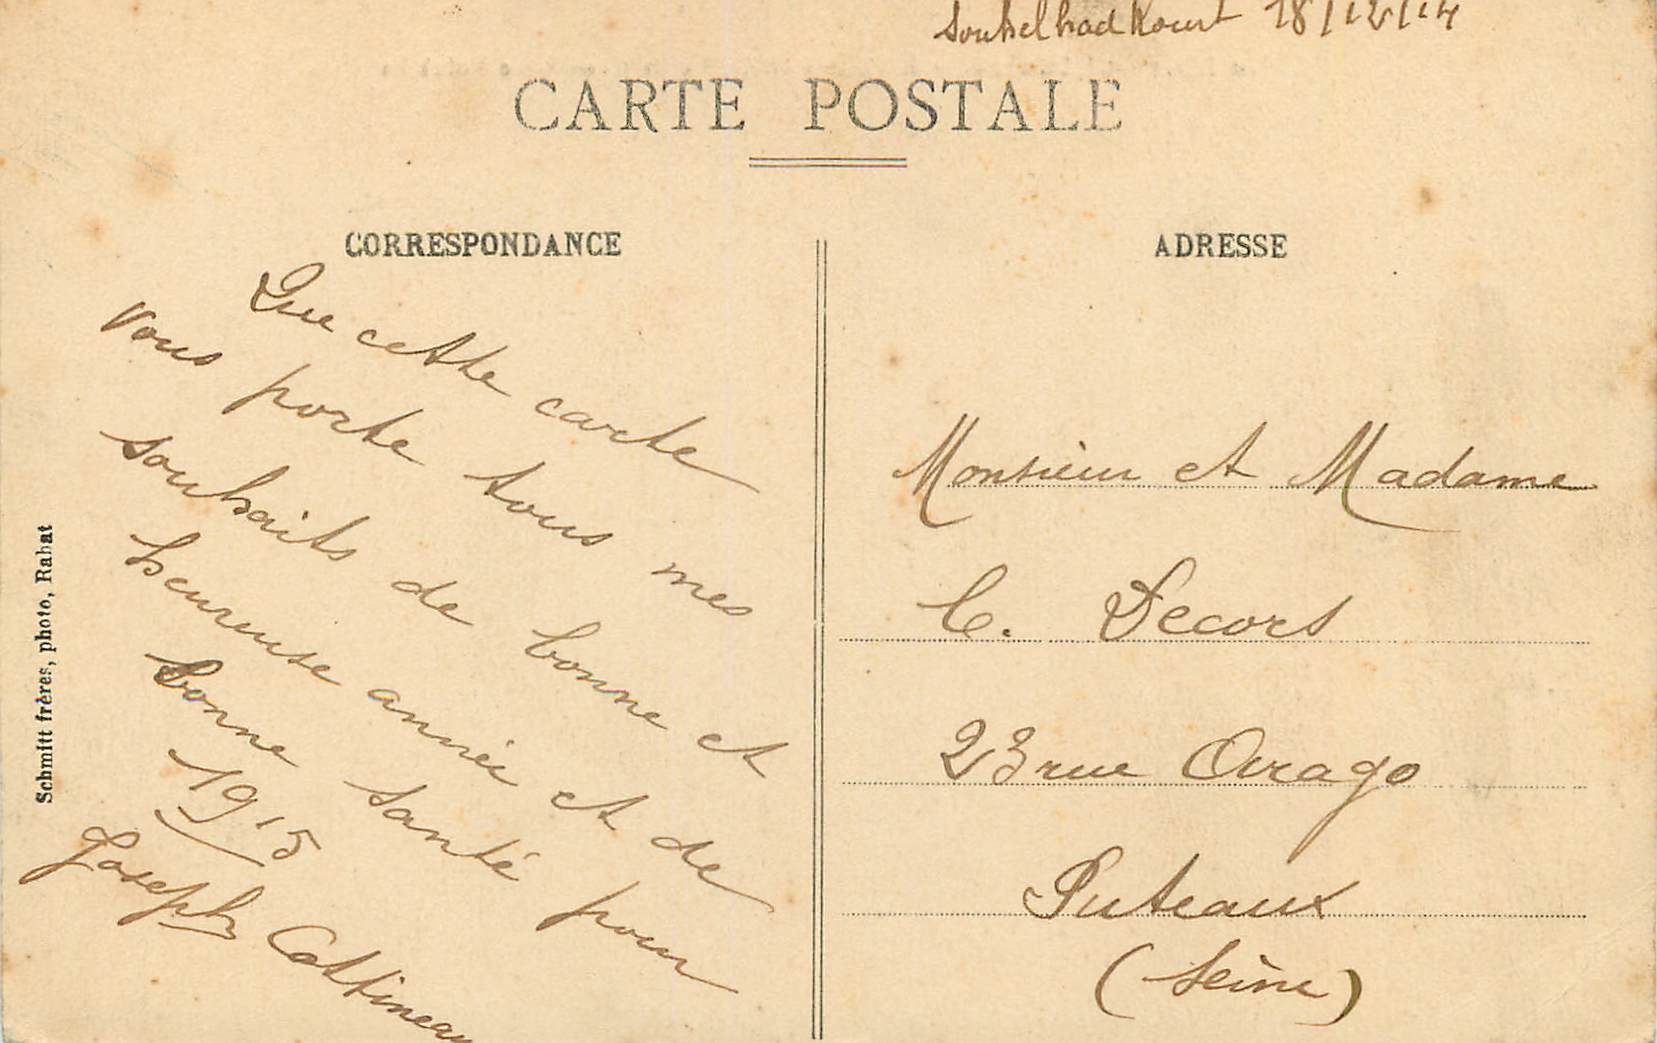 Soukelhad Kourt 18/12/14
CARTE POSTALE
CORRESPONDANCE
Que cette carte
vous porte tous mes
souhaits de bonne et
heureuse année et de
bonne santé pour
1915
Joseph Cottineau
Schmitt frères, photo, Rabat
ADRESSE
Monsieur et Madame
C. Decors
23 rue Arago
Puteaux
(Seine)